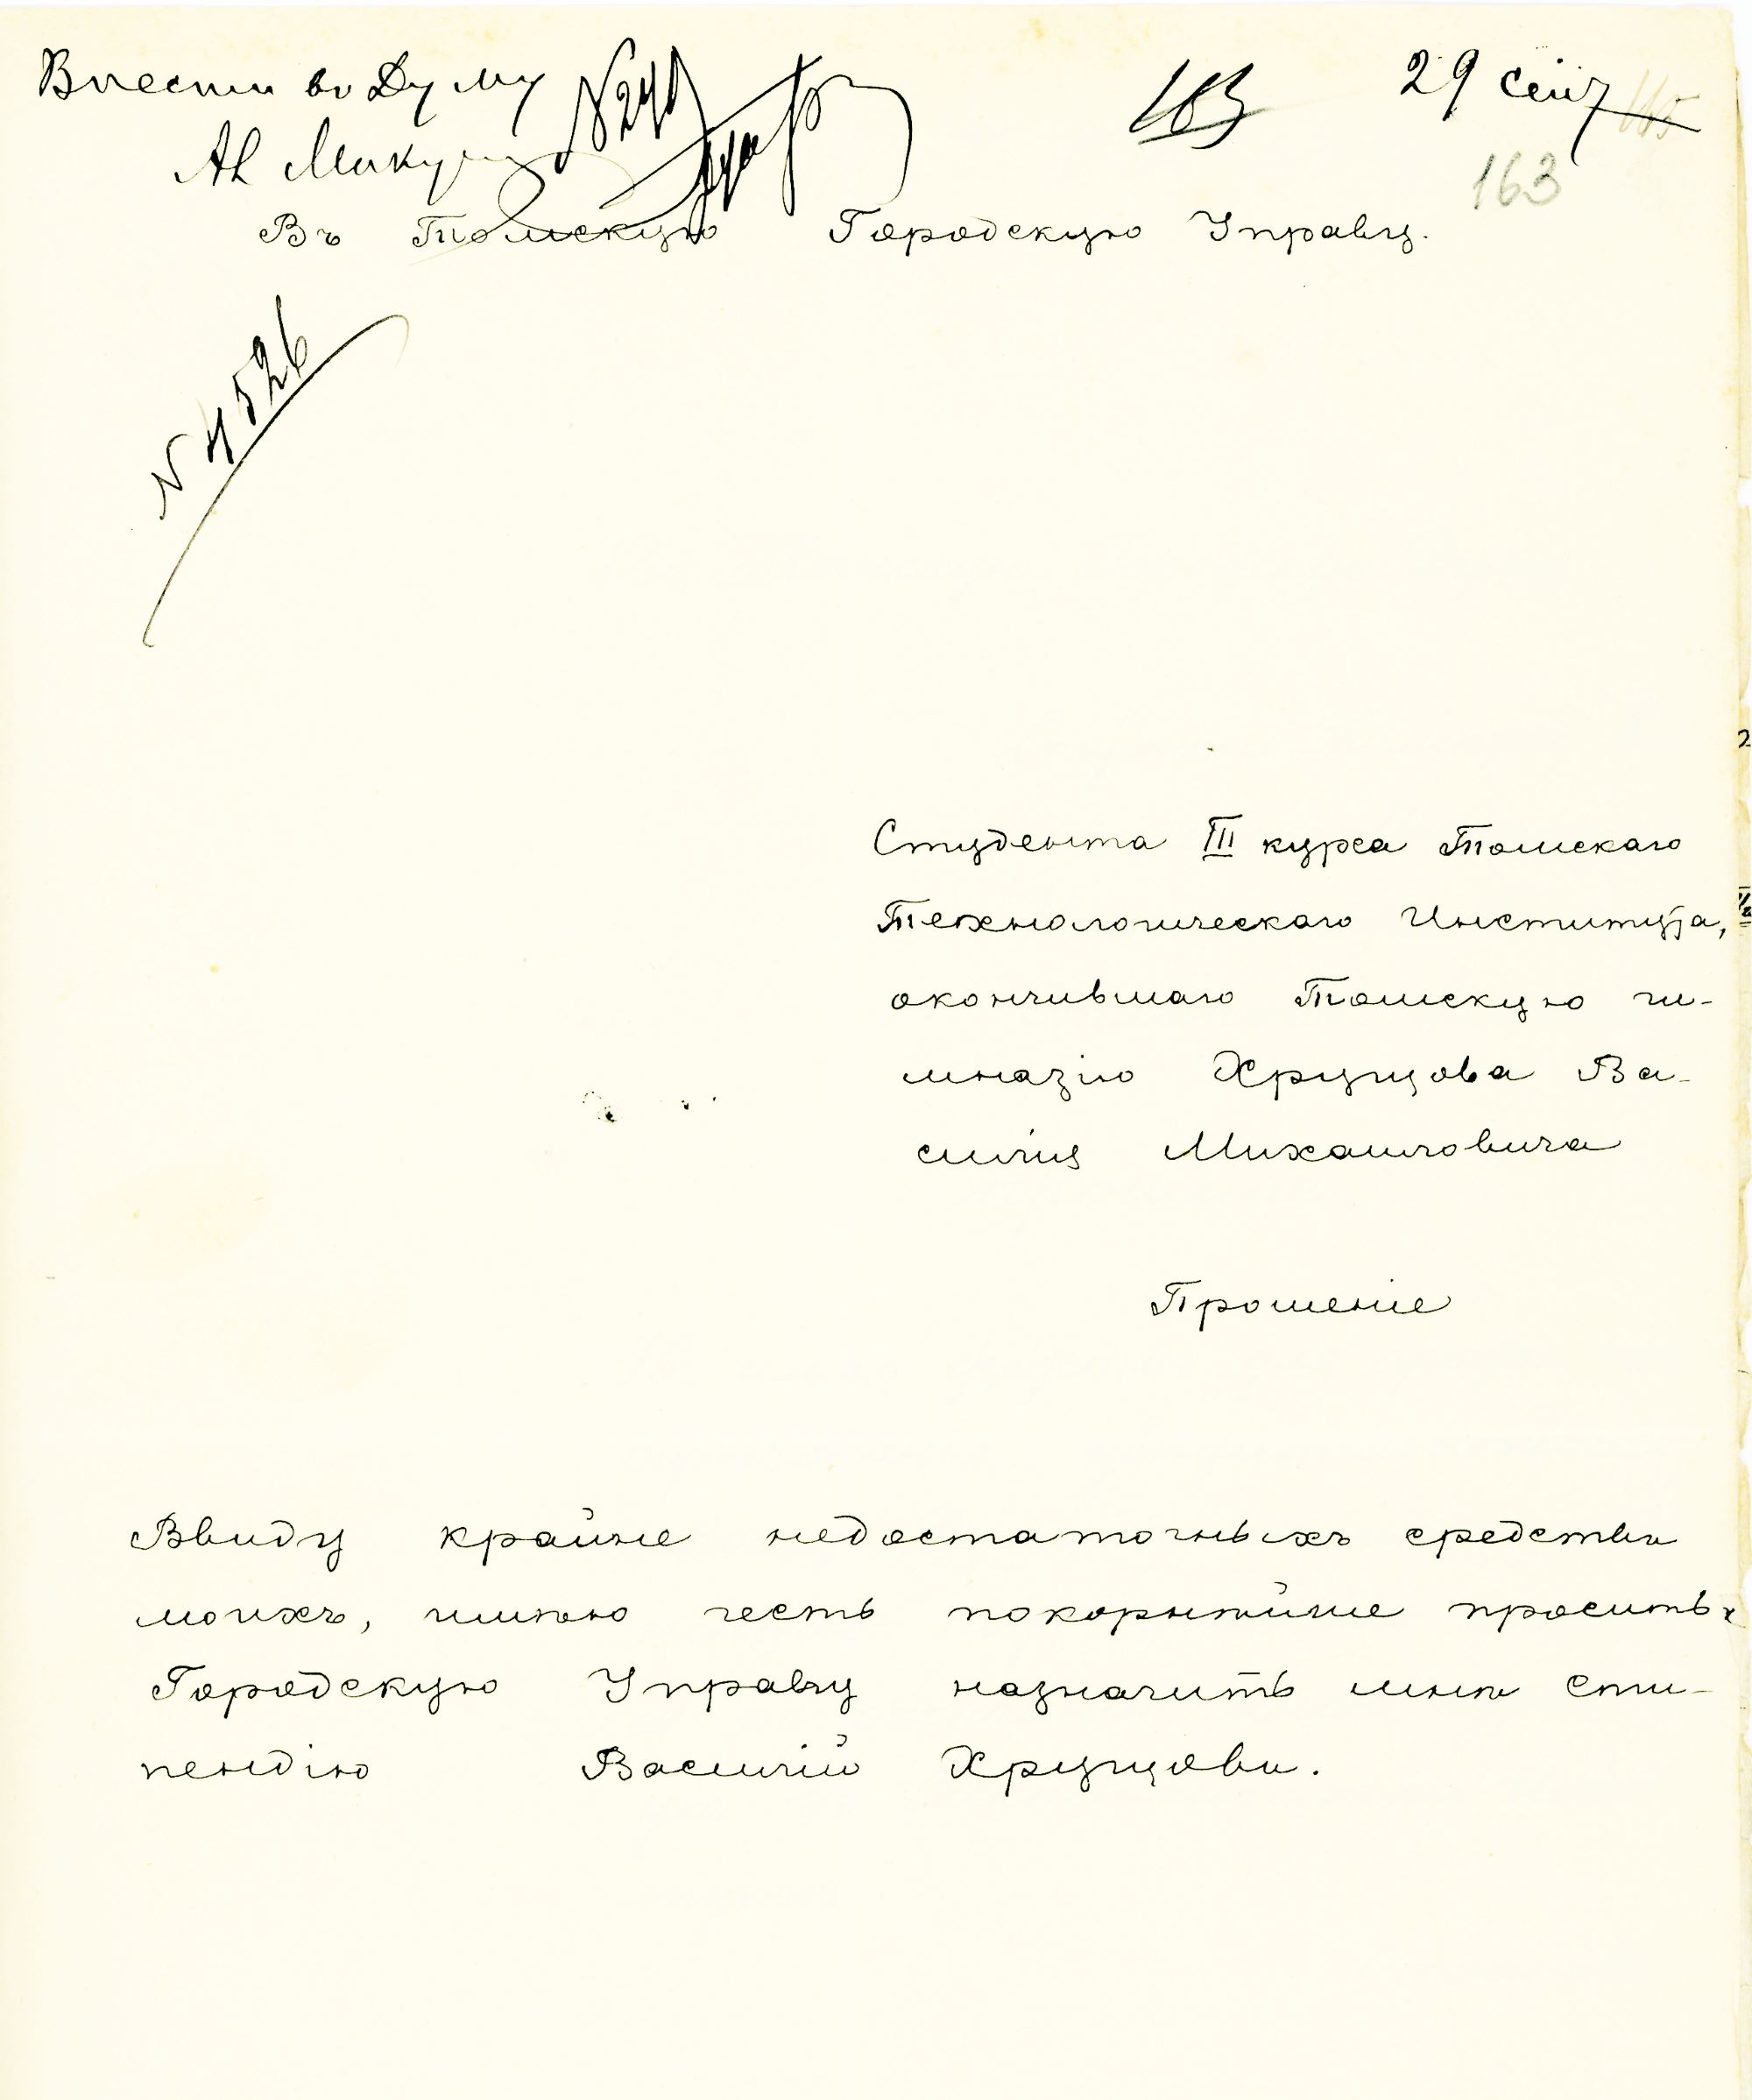 Внести въ Думу
29 сент
163
163
Въ Томскую Городскую Управу.
N 4526
Студента III курса Томскаго
Технологическаго Института,
окончившаго Томскую ги-
мназію Хрущова Ва-
силія Михаиловича
Прошеніе
Ввиду крайне недостаточныхъ средствъ
моихъ, имѣю честь покорнѣйше просить
Городскую Управу назначить мнѣ сти-
пендію Василій Хрущовъ.